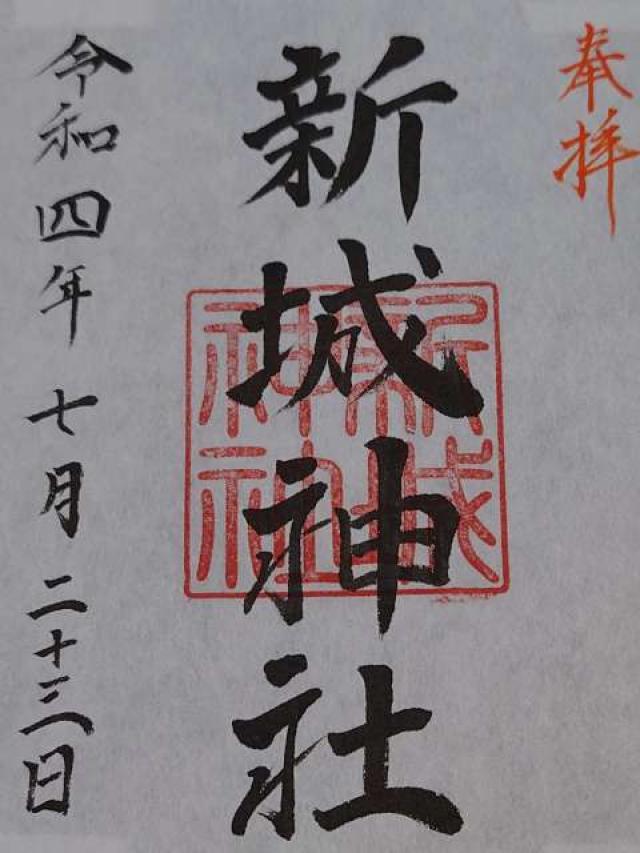 奉拝
新城神社
新城神社
令和四年七月二十三日